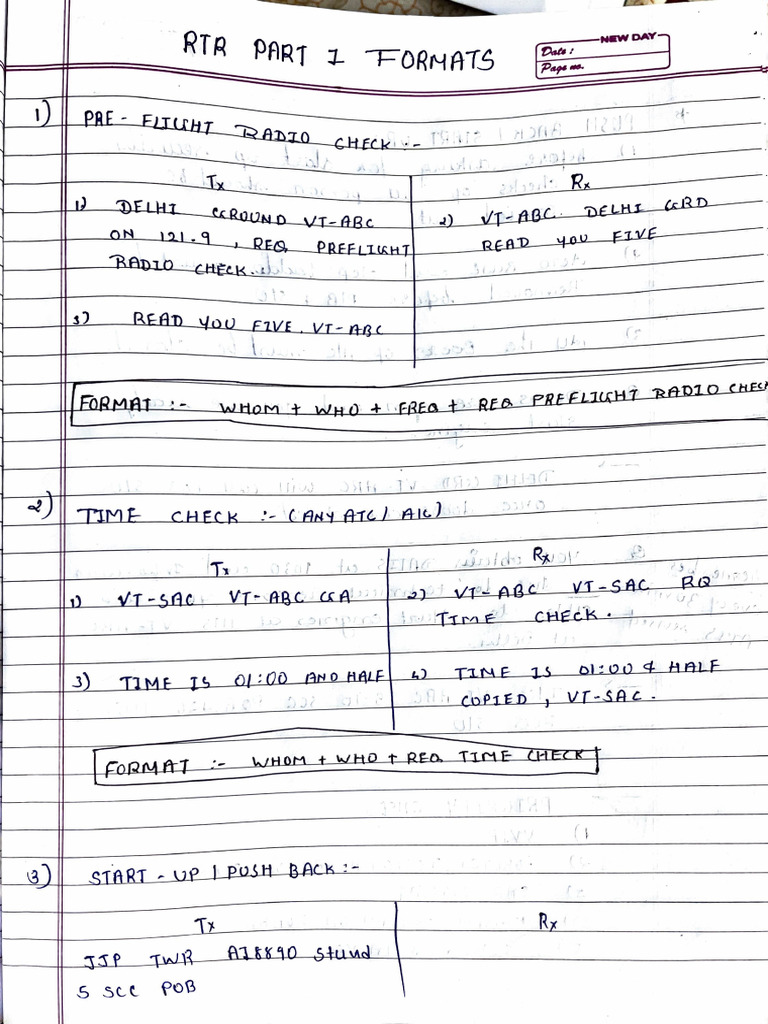 RTR PART 1 FORMATS
NEW DAY
Date :
Page no.
1) PRE-FLIGHT RADIO CHECK :-
Tx
Rx
1) DELHI GROUND VT-ABC
ON 121.9, REQ PREFLIGHT
RADIO CHECK.
2) VT-ABC. DELHI GRD
READ YOU FIVE
3) READ YOU FIVE. VT-ABC
FORMAT :- WHOM + WHO + FREQ + REQ PREFLIGHT RADIO CHECK
2) TIME CHECK :- (ANY ATC / A/C)
Tx
Rx
1) VT-SAC VT-ABC GA
2) VT-ABC VT-SAC RQ
TIME CHECK.
3) TIME IS 01:00 AND HALF
4) TIME IS 01:00 & HALF
COPIED, VT-SAC.
FORMAT :- WHOM + WHO + REQ TIME CHECK
3) START-UP / PUSH BACK :-
Tx
Rx
JJP TWR AI8890 Stand
5 SCC POB